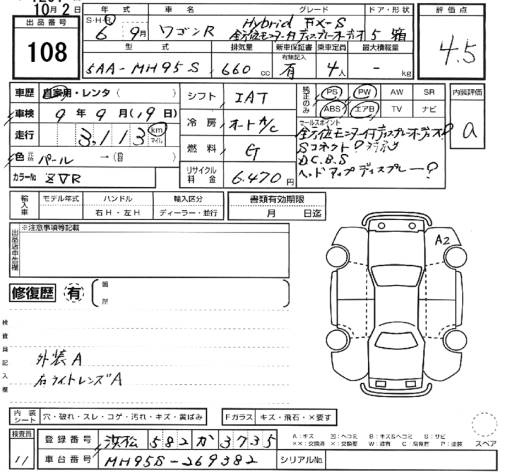 10月2日
出品番号
108
年式
S・H・R
6年 9月
車名
ワゴンR
グレード
Hybrid FX-S
全方位モニター付ディスプレイオーディオ
ドア・形状
5 箱
評価点
4.5
型式
5AA-MH95S
排気量
660 cc
新車保証書
有無記入
有
乗車定員
4人
最大積載量
- kg
車歴
自家用・レンタ( )
車検
9年 9月 19日
走行
3,113 km
マイル
色
パール → ( )
カラーNo.
ZVR
シフト
IAT
冷房
オートA/C
燃料
G
リサイクル料金
6,470円
純正のみ
PS PW AW SR
ABS エアB TV ナビ
セールスポイント
全方位モニター付ディスプレイオーディオ
Sコネクト
D.C.B.S
ヘッドアップディスプレー
内装評価
a
輸入車
モデル年式
ハンドル
右H・左H
輸入区分
ディーラー・並行
書類有効期限
月 日迄
※注意事項等記載
修復歴
有
箇所
A2
検査員記入欄
外装A
右ライトレンズA
内装
シート
穴・破れ・スレ・コゲ・汚れ・キズ・黄ばみ
Fガラス
キズ・飛石・×要す
検査員
11
登録番号
浜松 582 か 3735
車台番号
MH95S-269382
シリアルNo.
スペア